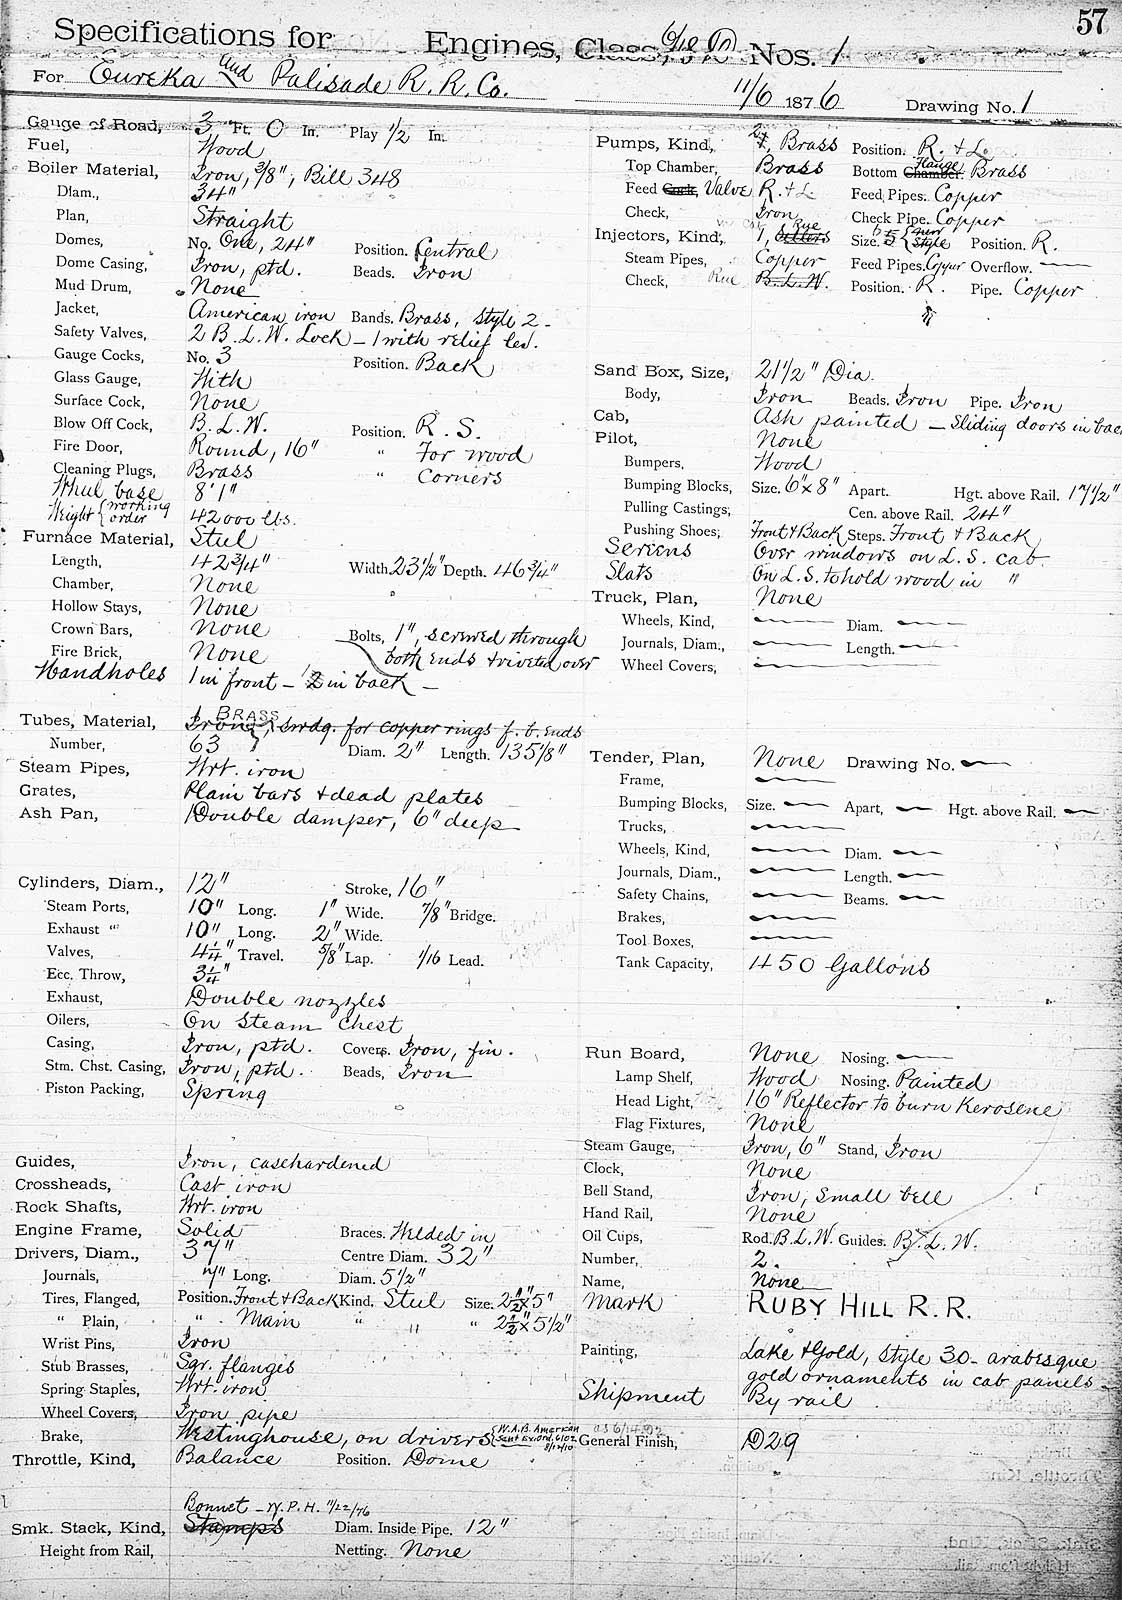 57
Specifications for Engines, Class, Nos. 1
For Eureka and Palisade R. R. Co. 11/6 1876 Drawing No. 1
Gauge of Road, 3 Ft. 0 In. Play 1/2 In.
Fuel, Wood
Boiler Material, Iron, 3/8", Bill 348
Diam., 34"
Plan, Straight
Domes, No. One, 24" Position. Central
Dome Casing, Iron, ptd. Beads. Iron
Mud Drum, None
Jacket, American iron Bands. Brass, style 2 -
Safety Valves, 2 B. L. W. Lock - 1 with relief lev.
Gauge Cocks, No. 3 Position. Back
Glass Gauge, With
Surface Cock, None
Blow Off Cock, B. L. W. Position. R. S.
Fire Door, Round, 16" " For wood
Cleaning Plugs, Brass " Corners
Wheel base 8' 1"
Weight { working order 42000 lbs.
Furnace Material, Steel
Length, 42 3/4" Width 23 1/2" Depth. 46 3/4"
Chamber, None
Hollow Stays, None
Crown Bars, None Bolts, 1", screwed through
Fire Brick, None both ends & riveted over
Handholes 1 in front - 2 in back -
BRASS
Tubes, Material, Iron, swdg. for copper rings f. b. ends
Number, 63 Diam. 2" Length. 135 1/8"
Steam Pipes, Wrt. iron
Grates, Plain bars & dead plates
Ash Pan, Double damper, 6" deep
Cylinders, Diam., 12" Stroke, 16"
Steam Ports, 10" Long. 1" Wide. 7/8" Bridge.
Exhaust " 10" Long. 2" Wide.
Valves, 4 1/4" Travel. 5/8" Lap. 1/16 Lead.
Ecc. Throw, 3 1/4"
Exhaust, Double nozzles
Oilers, On Steam Chest
Casing, Iron, ptd. Covers. Iron, fin.
Stm. Chst. Casing, Iron, ptd. Beads, Iron
Piston Packing, Spring
Guides, Iron, casehardened
Crossheads, Cast iron
Rock Shafts, Wrt. iron
Engine Frame, Solid Braces. Welded in
Drivers, Diam., 37" Centre Diam. 32"
Journals, 7" Long. Diam. 5 1/2"
Tires, Flanged, Position. Front & Back Kind. Steel Size. 2 1/2" x 5"
" Plain, " Main " " " 2 1/2" x 5 1/2"
Wrist Pins, Iron
Stub Brasses, Sqr. flanges
Spring Staples, Wrt. iron
Wheel Covers, Iron pipe
Brake, Westinghouse, on drivers { W.A.B. American
Throttle, Kind, Balance Position. Dome
Bonnet - W. P. H. 11/22/76
Smk. Stack, Kind, Stamps Diam. Inside Pipe. 12"
Height from Rail, Netting. None
Pumps, Kind, Brass Position. R. & L.
Top Chamber, Brass Bottom Chamber. Flange Brass
Feed Cock, Valve R. & L. Feed Pipes. Copper
Check, Iron Check Pipe. Copper
Injectors, Kind, 1, Sellers Rue Size. 5 { new style Position. R.
Steam Pipes, Copper Feed Pipes. Copper Overflow.
Check, Rue B. L. W. Position. R. Pipe. Copper
Sand Box, Size, 21 1/2" Dia.
Body, Iron Beads. Iron Pipe. Iron
Cab, Ash painted - Sliding doors in bac
Pilot, None
Bumpers, Wood
Bumping Blocks, Size. 6" x 8" Apart. Hgt. above Rail. 17 1/2"
Pulling Castings, Cen. above Rail. 24"
Pushing Shoes, Front & Back Steps. Front & Back
Screens Over windows on L. S. cab.
Slats On L. S. to hold wood in "
Truck, Plan, None
Wheels, Kind, Diam.
Journals, Diam., Length.
Wheel Covers,
Tender, Plan, None Drawing No.
Frame,
Bumping Blocks, Size. Apart, Hgt. above Rail.
Trucks,
Wheels, Kind, Diam.
Journals, Diam., Length.
Safety Chains, Beams.
Brakes,
Tool Boxes,
Tank Capacity, 450 Gallons
Run Board, None Nosing.
Lamp Shelf, Wood Nosing. Painted
Head Light, 16" Reflector to burn Kerosene
Flag Fixtures, None
Steam Gauge, Iron, 6" Stand, Iron
Clock, None
Bell Stand, Iron, small bell
Hand Rail, None
Oil Cups, Rod. B. L. W. Guides. B. L. W.
Number, 2.
Name, None
Mark RUBY HILL R. R.
Painting, Lake & Gold, style 30 - arabesque
gold ornaments in cab panels
Shipment By rail
General Finish, D29